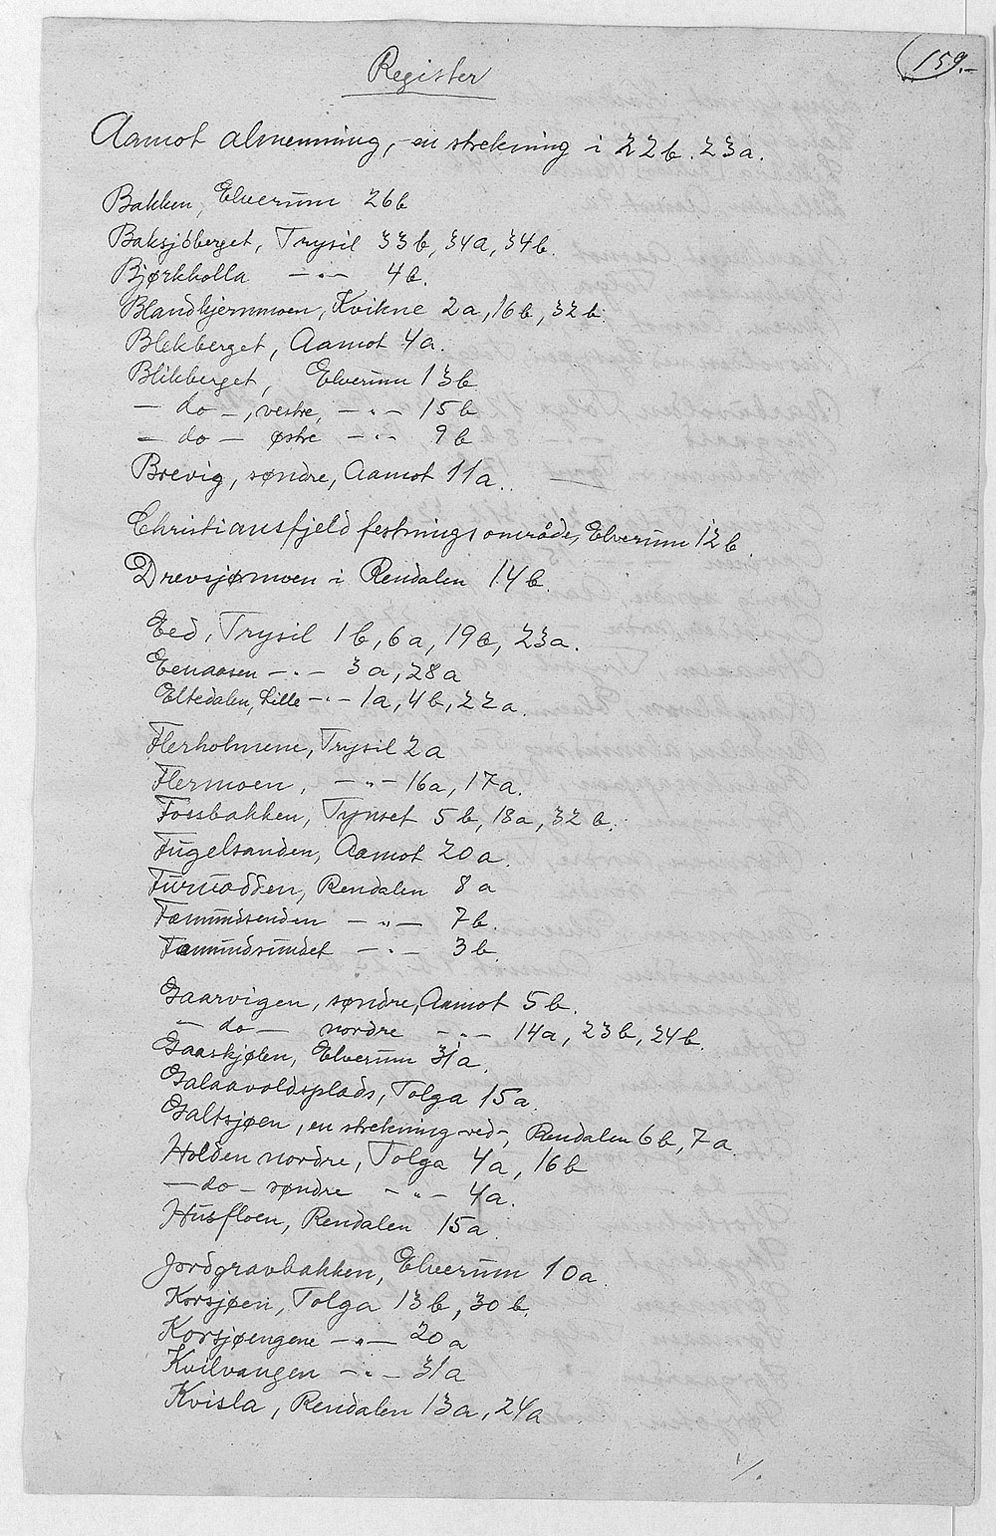 159.-
Register
Aamot almenning, - en strekning i 22b. 23a.
Bakken, Elverum 26b
Baksjöberget, Trysil 33b, 34a, 34b.
Bjørkholla -"- 4b.
Blandkjernmoen, Kvikne 2a, 16b, 32b.
Blekberget, Aamot 4a.
Blikberget, Elverum 13b
- do -, vestre, -"- 15b
- do - østre -"- 9b
Brevig, søndre, Aamot 11a.
Christiansfjeld festningsområde, Elverum 12b.
Drevsjømoen i Rendalen 14b.
Eed, Trysil 1b, 6a, 19b, 23a.
Eenaasen -"- 3a, 28a
Eltedalen, Lille -"- 1a, 4b, 22a.
Flerholmene, Trysil 2a
Flermoen, -"- 16a, 17a.
Fossbakken, Tynset 5b, 18a, 32b.
Fugelsanden, Aamot 20a.
Furuodden, Rendalen 8a
Fæmundsenden -"- 7b.
Fæmundsundet -"- 3b.
Gaarvigen, søndre, Aamot 5b.
- do - nordre -"- 14a, 23b, 24b.
Gaaskjølen, Elverum 31a.
Galaavoldsplads, Tolga 15a.
Galtsjøen, en strekning ved -, Rendalen 6b, 7a.
Holden nordre, Tolga 4a, 16b
- do - søndre -"- 4a.
Husfloen, Rendalen 15a.
Jordgravbakken, Elverum 10a.
Korsjøen, Tolga 13b, 30b.
Korsjøengene -"- 20a
Kvilvangen -"- 31a
Kvisla, Rendalen 13a, 24a.
./.